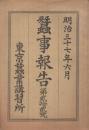 明治三十七年六月
蠶事報告
東京蠶業講習所